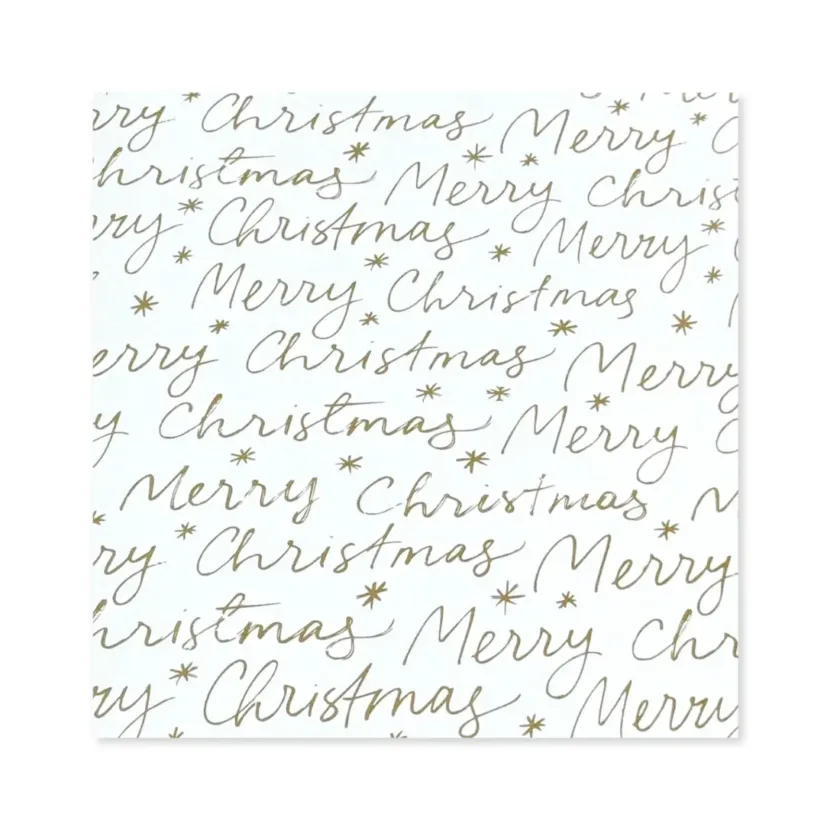 Merry
rry Christmas Merry C
hristmas Merry Christ
rry Christmas Merry C
Merry Christmas
erry Christmas Merry
y Christmas Merry C
Merry Christmas M
rry Christmas Merry
hristmas Merry Chr
ry Christmas Merry